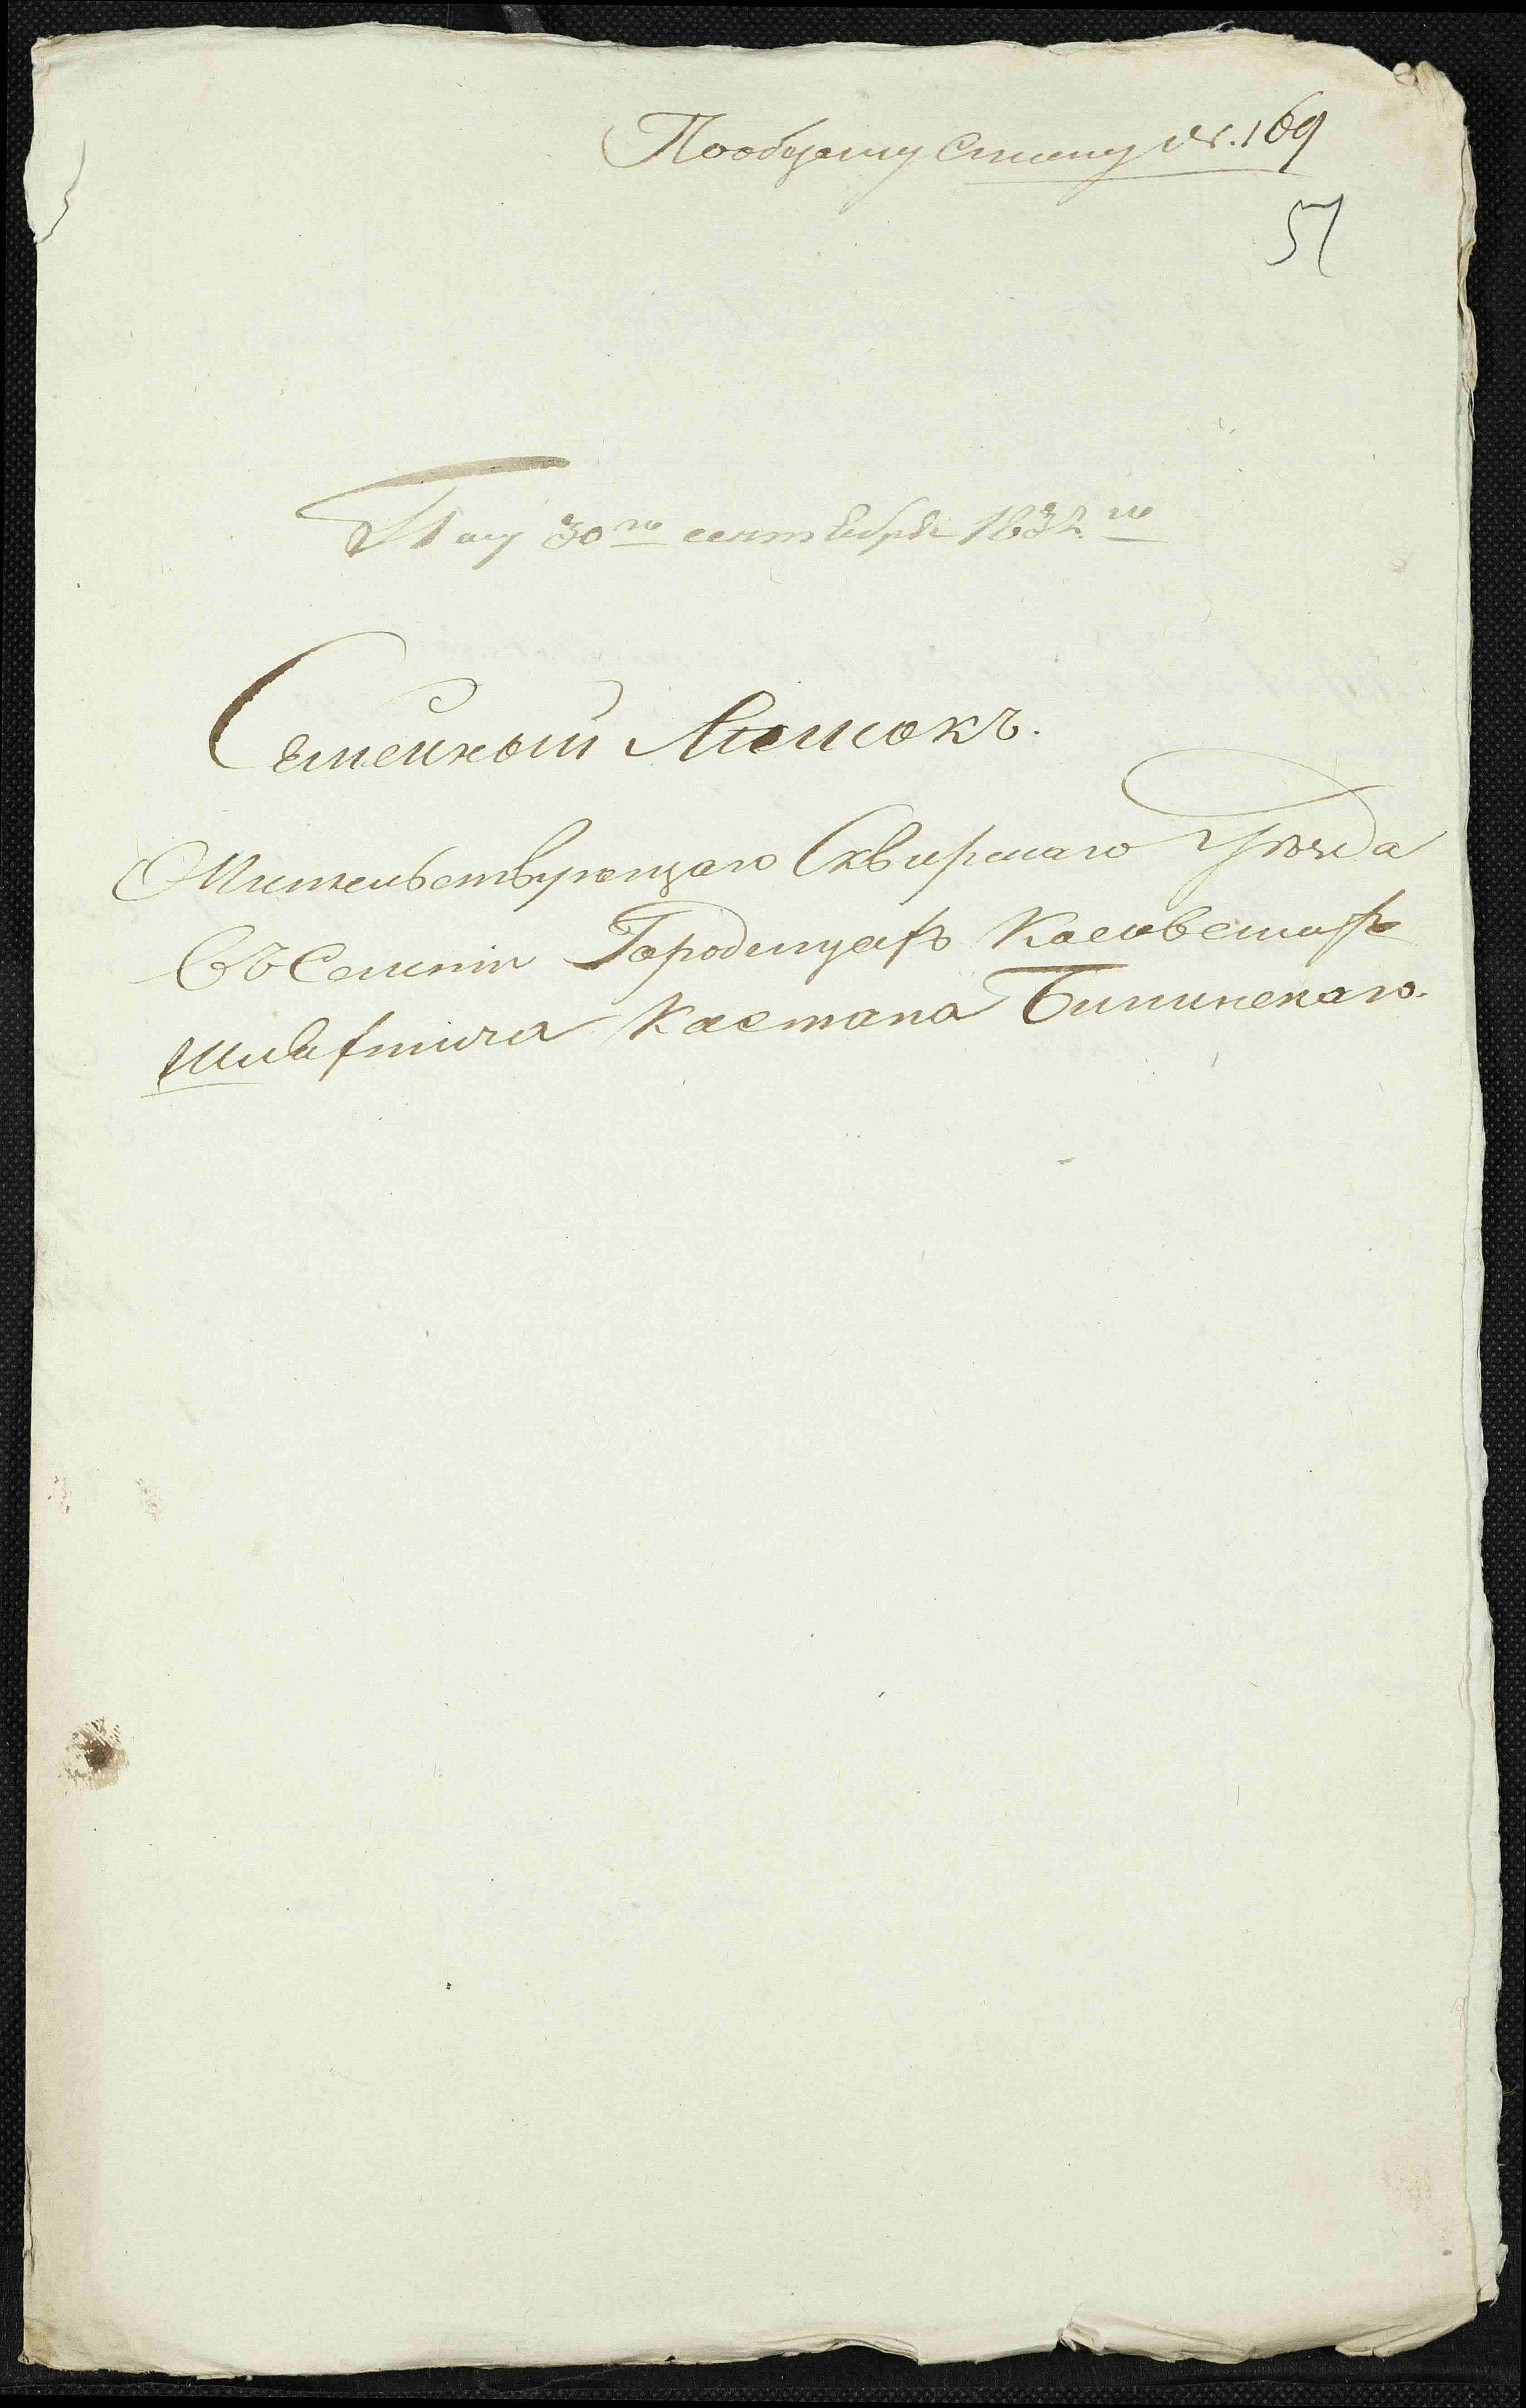 Пообщему списку №. 169
51
Пау 30го сентября 1832го
Семейный Списокъ.
Жительствующаго Сквирскаго Уѣзда
Въ Селеніи Городищахъ Косовскихъ
Шляхтича Каетана Билинскаго.